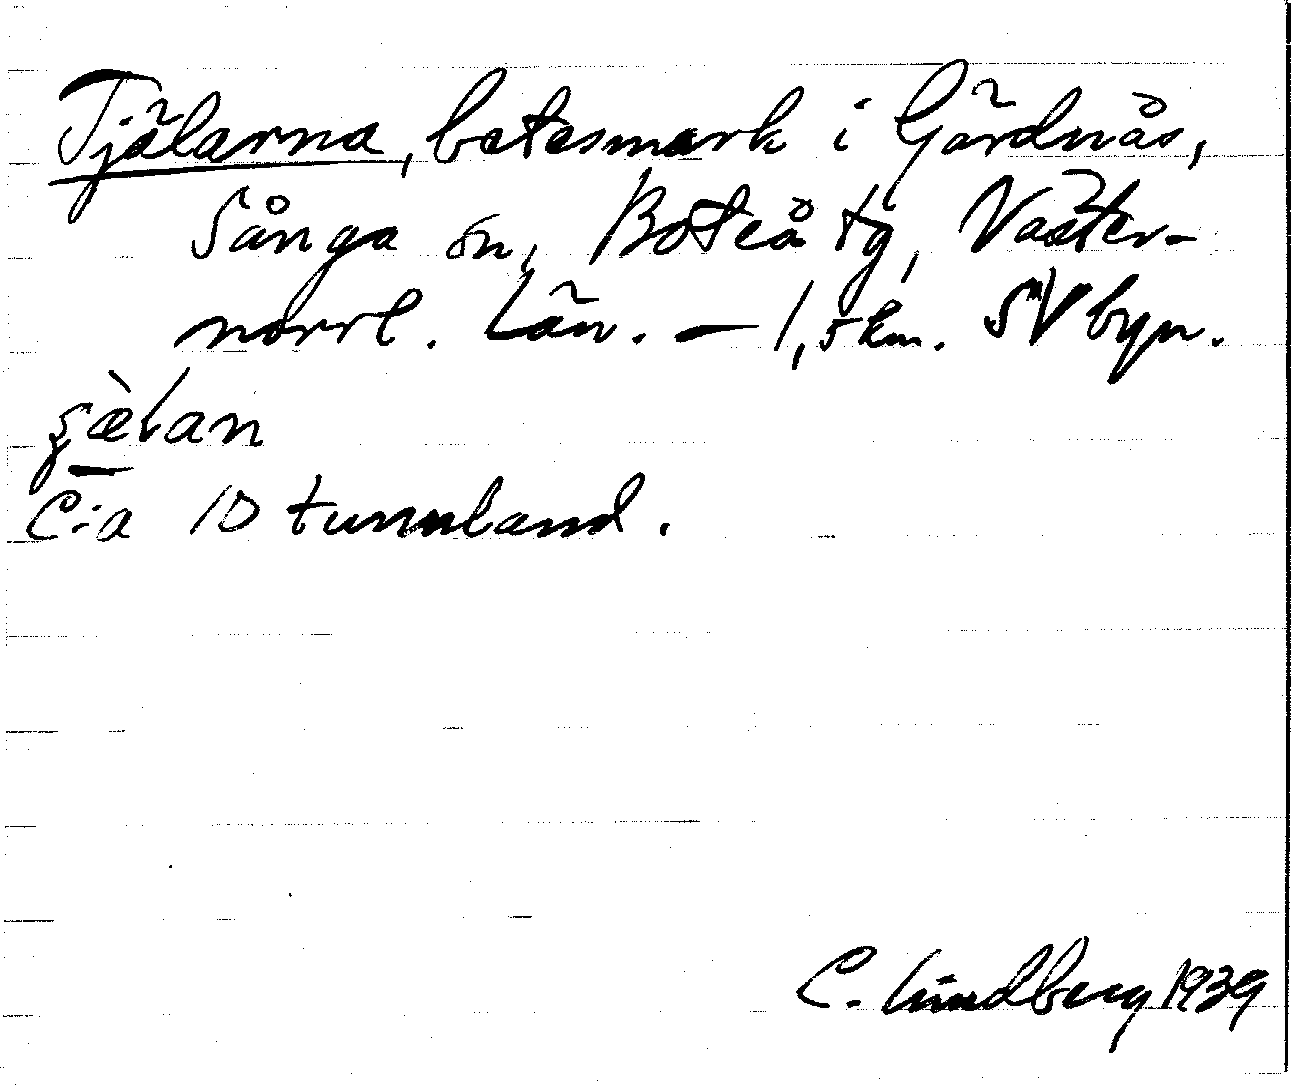 Tjälarna, betesmark i Gärdnäs,
Sånga sn, Boteå tg, Väster-
norrl. Län. – 1,5 km. SV byn.
ʂæ̀lan
C:a 10 tunnland.
C. Lindberg 1939